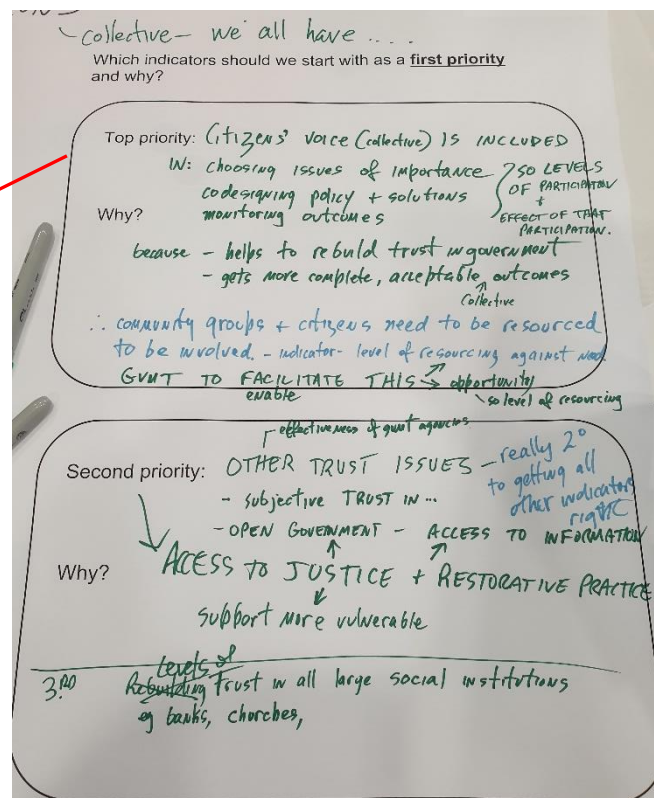 collective - we all have ....
Which indicators should we start with as a first priority
and why?
Top priority: Citizens' voice (collective) is included
in: choosing issues of importance
codesigning policy + solutions
monitoring outcomes
so levels
of participation
+
effect of that
participation.
Why?
because - helps to rebuild trust in government
- gets more complete, acceptable outcomes
Collective
∴ community groups + citizens need to be resourced
to be involved. - indicator - level of resourcing against need
Gvmt to facilitate this → opportunity
enable
so level of resourcing
effectiveness of gvmt agencies
Second priority: OTHER TRUST ISSUES - really 2°
to getting all
other indicators
right
- subjective TRUST in ...
- OPEN GOVERNMENT - ACCESS TO INFORMATION
Why?
ACCESS TO JUSTICE + RESTORATIVE PRACTICE
support more vulnerable
Levels of
3.RD Rebuilding trust in all large social institutions
eg banks, churches,